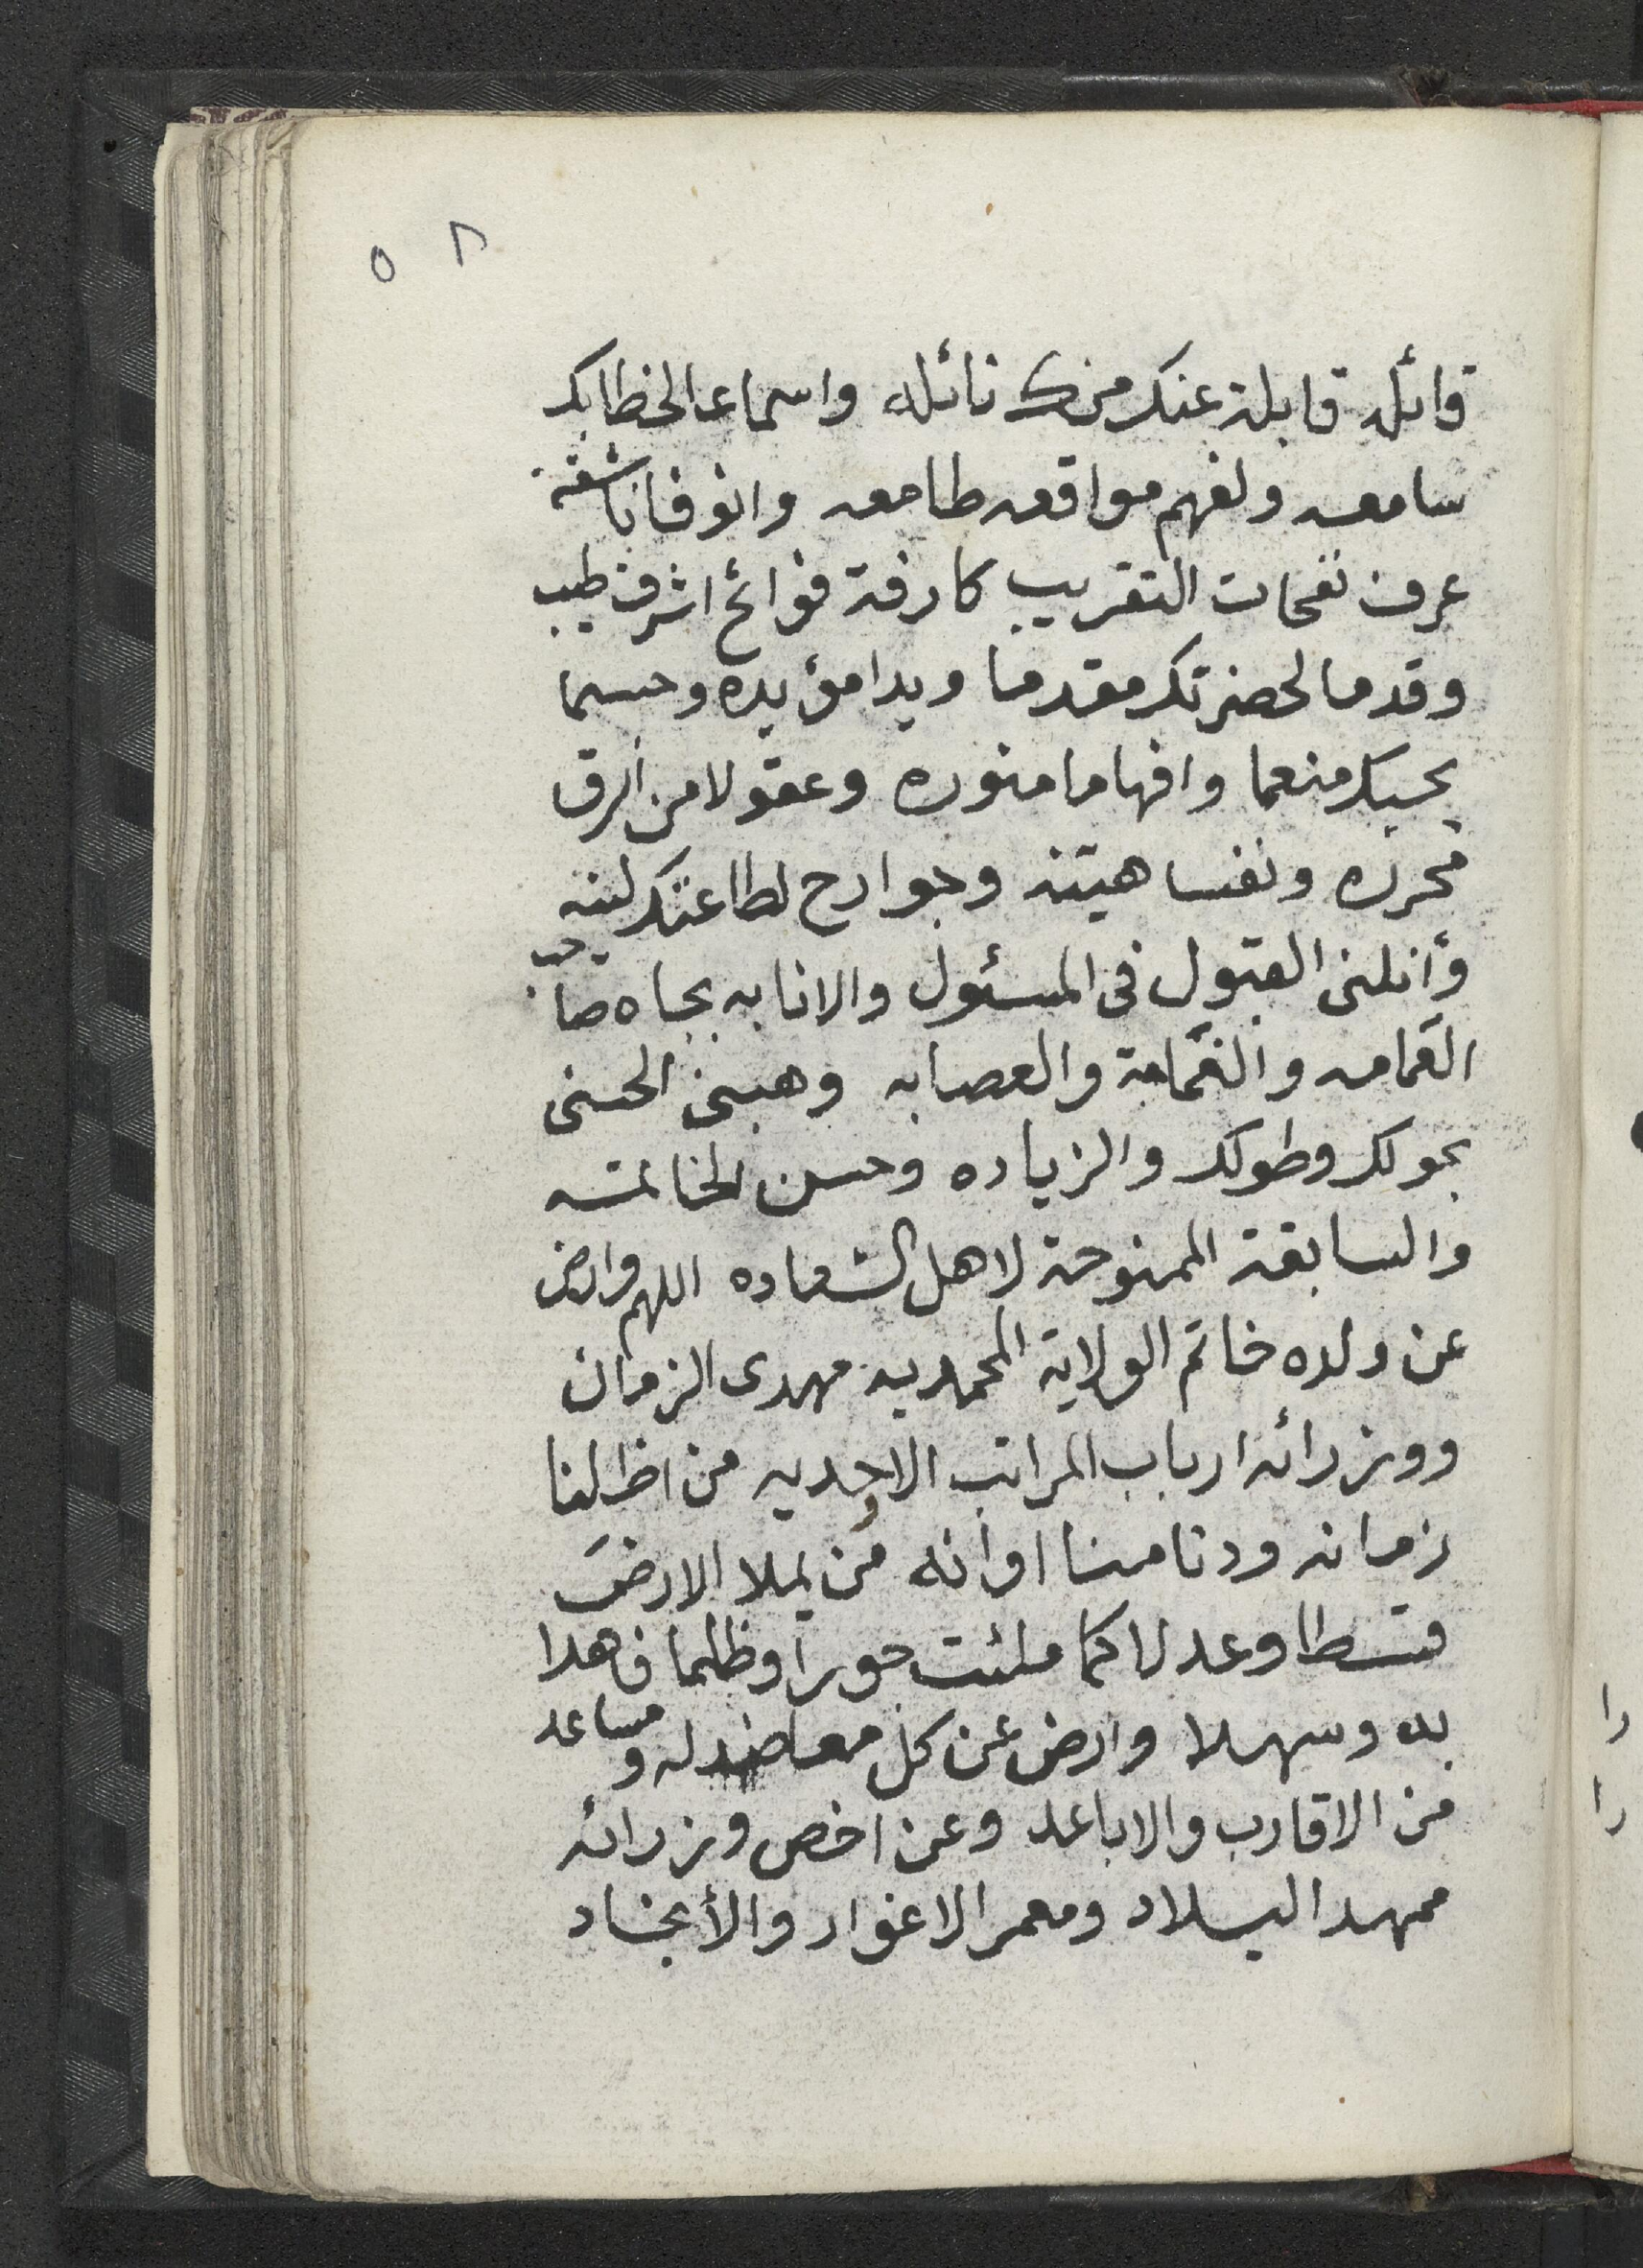 ٥ ٨
قائله قابلة عنك منك نائله واسماعا لخطابك
سامعه ولفهم مواقعه طامعه وانوفا ناشقة
عرف نفحات التقريب كارفة فوائح اشرف طيب
وقدما لحضرتك مقدما ويدا مؤيده وجسما
بحبك منعما وافهاما منوره وعقولا من الرق
محرره ونفسا هينه وجوارح لطاعتك لينه
وأنلنى القبول فى المسئول والانابه بجاه صاحب
العمامه والغمامة والعصابه وهبنى الحسنى
بحولك وطولك والزياده وحسن الخاتمه
والسابقة الممنوحة لاهل السعاده اللهم وارض
عن ولده خاتم الولاية المحمديه مهدى الزمان
ووزرائه ارباب المراتب الاحديه من اظلنا
زمانه ودنا منا اوانه من يملا الارض
قسطا وعدلا كما ملئت جورا وظلما فاهلا
به وسهلا وارض عن كل معاضد له ومساعد
من الاقارب والاباعد وعن اخص وزرائه
ممهد البلاد ومعمر الاغوار والأنجاد